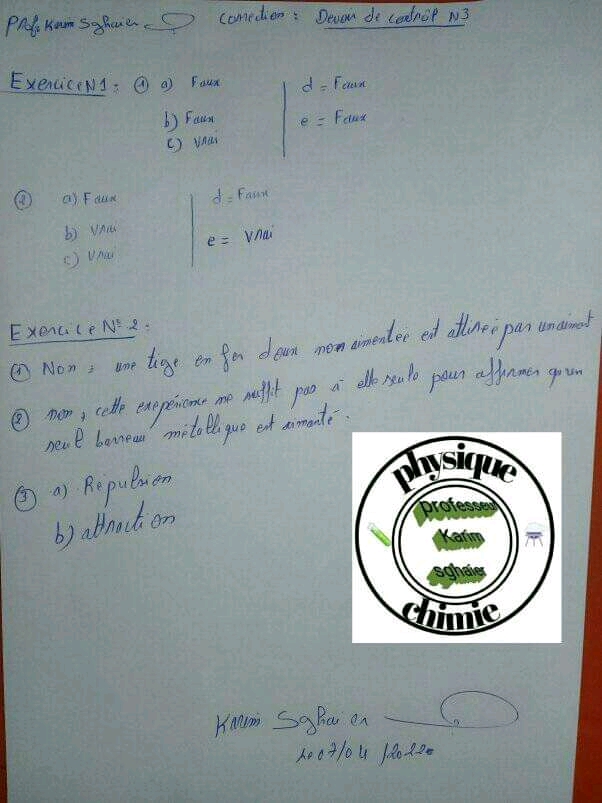 Prof: Karim Sghaier Correction: Devoir de contrôl N3
Exercice N1: ① a) Faux d = Faux
b) Faux e = Faux
c) Vrai
② a) Faux d = Faux
b) Vrai e = Vrai
c) Vrai
Exercice N° 2:
① Non, une tige en fer doux non aimentée est attirée par un aimant
② non, cette expérience ne suffit pas à elle seule pour affirmer qu'un
seul barreau métallique est aimanté.
③ a) Répulsion
b) attraction
physique
professeur
Karim
sghaier
chimie
Karim Sghaier
le 07/04/2022